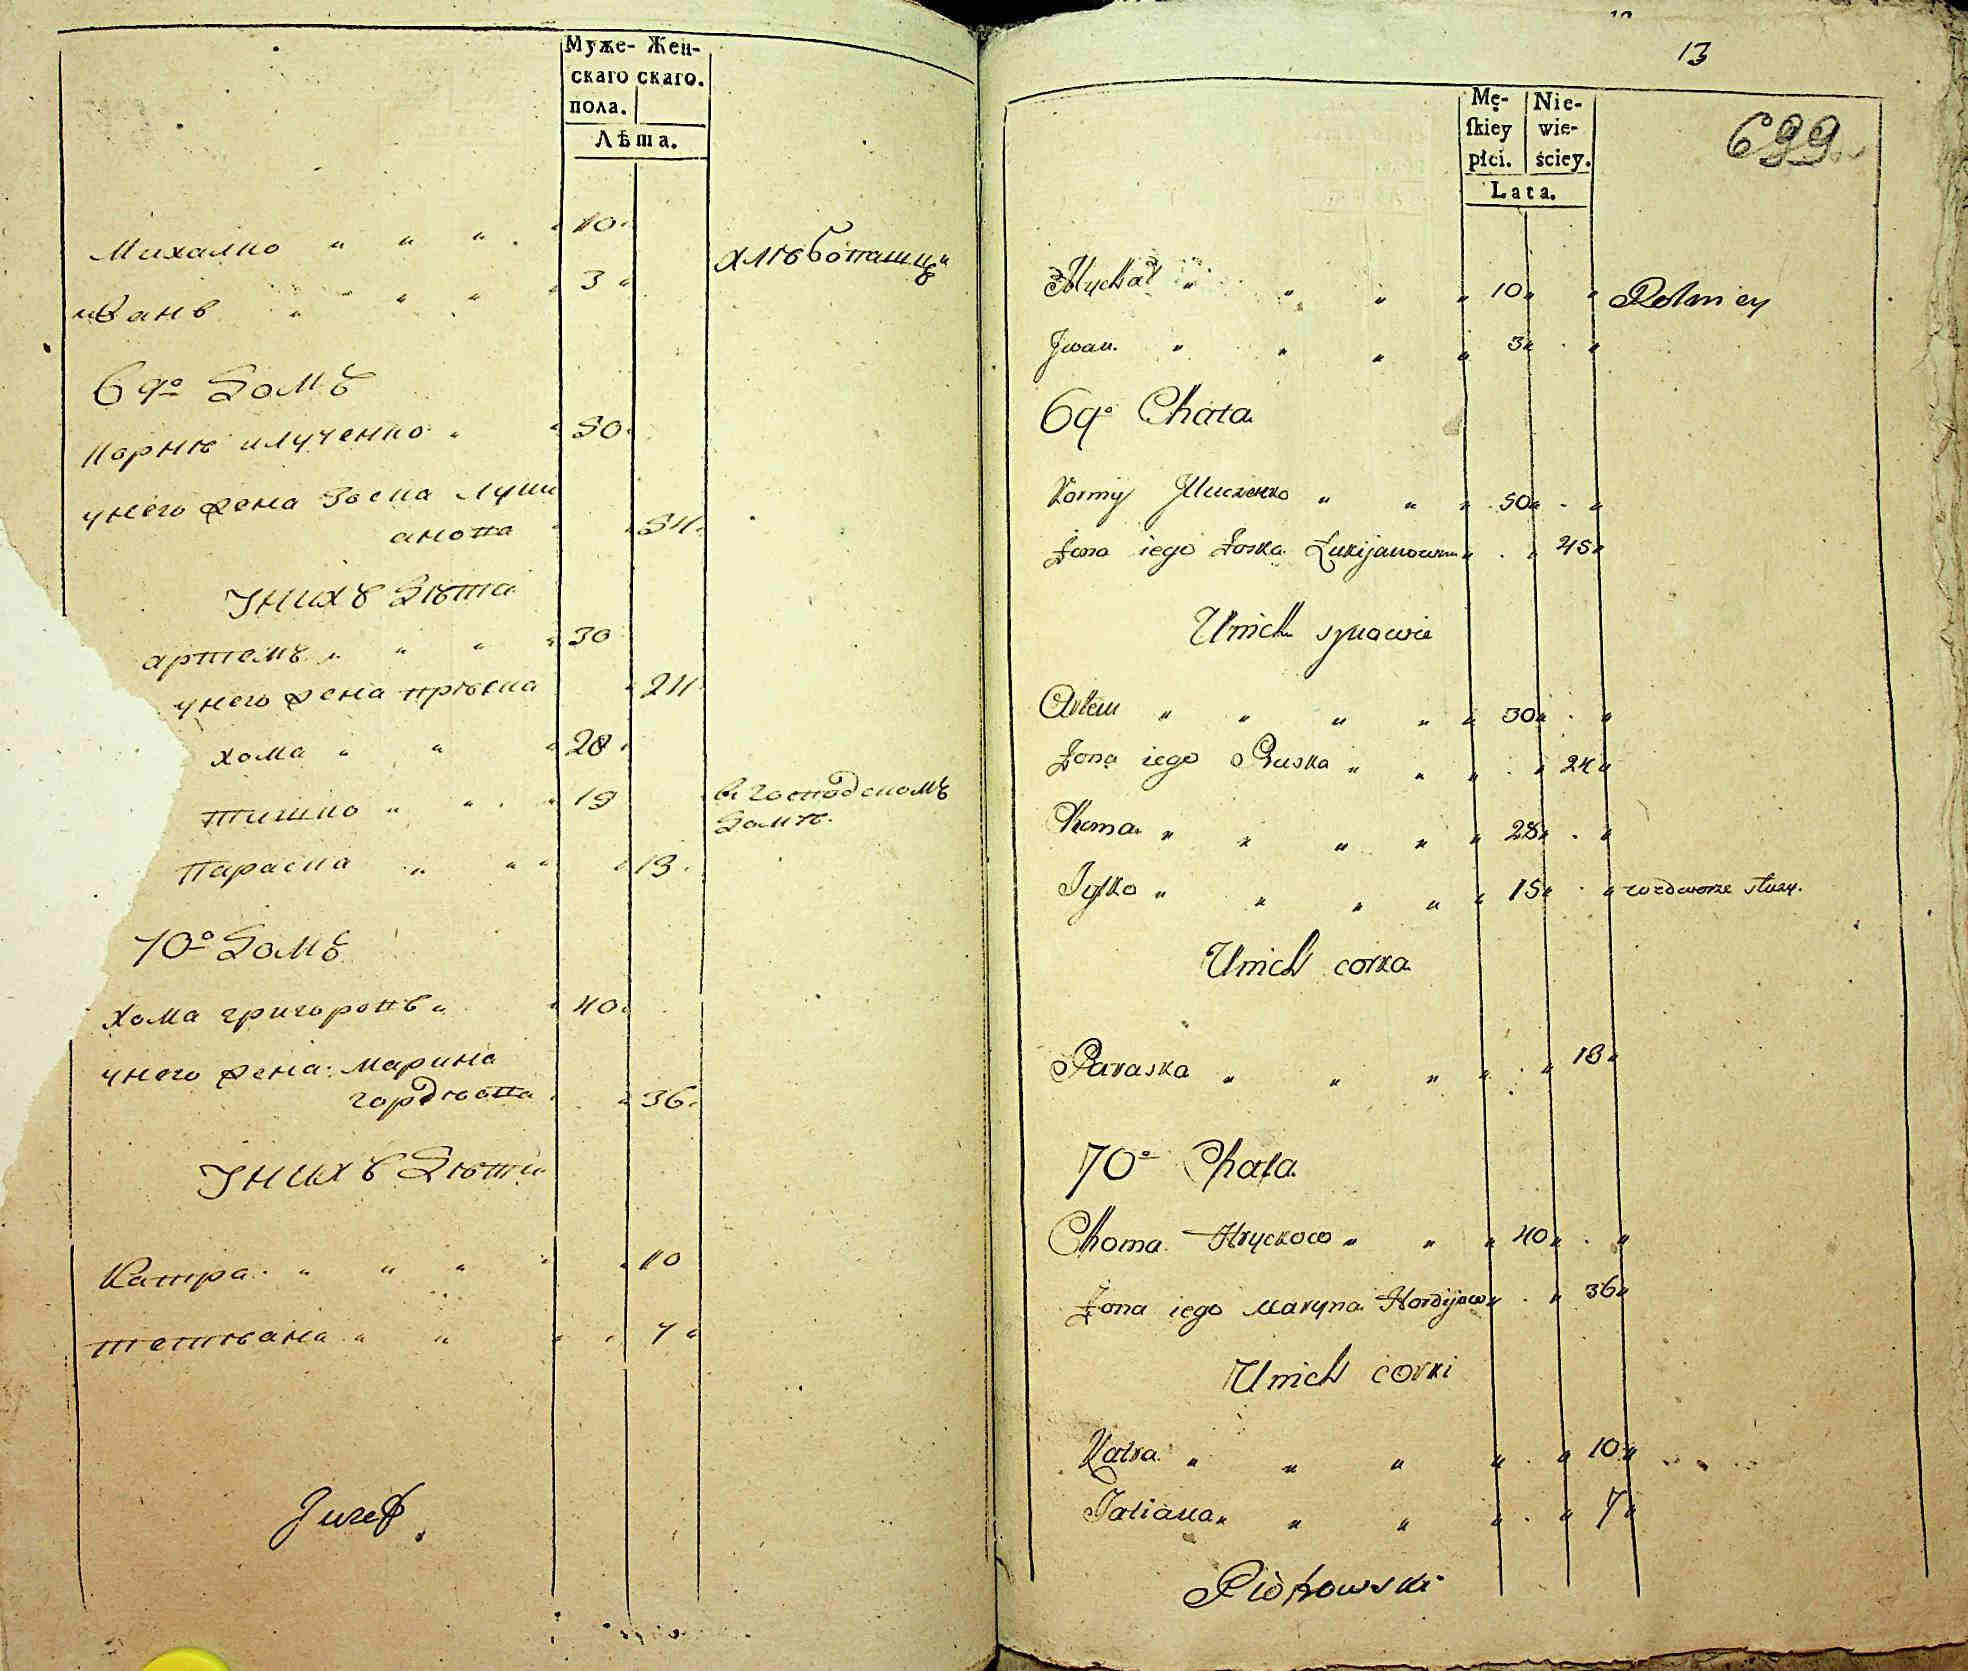 Муже- Жен-
скаго скаго.
пола.
Лѣта.
Михалко " " " " 10 "
хлѣбопашцы
иванъ " " " " 3 "
69º Домъ
Корнѣ илученко " " 50 "
унего жена Зоска Луки
анова " " 54 "
Унихъ Дѣти
артемъ " " " " 30
унего женаприска " 24 "
хома " " " 28 "
тишко " " " 19
в господскомъ
Домѣ.
Параска " " " " 13 "
70º Домъ
Хома григоровъ " " 40 "
унего жена Марина
гордѣова " " 36 "
Унихъ Дѣти
Катра " " " " " 10
тетѣана " " " " 7 "
13
Mę- Nie-
skiey wie-
płci. ściey.
Lata.
699
Mychał " " " " 10 " " Rolnicy
Jwan " " " " 3 " "
69º Chata
Korniy Jluczenko " " " 50 " "
Żona iego Zoska Łukijanowna " " 45 "
Unich synowie
Artem " " " " " 30 " "
Żona iego Pruska " " " " 24 "
Khoma " " " " " 28 " "
Tyszko " " " " " 15 " " we dworze słuzy.
Unich corka
Paraska " " " " " 13 "
70º Chata
Choma Hryckow " " " 40 " "
Żona iego Maryna Hordijow " " 36 "
Unich corki
Katra " " " " " 10 "
Tatiana " " " " " 7 "
Piotrowski